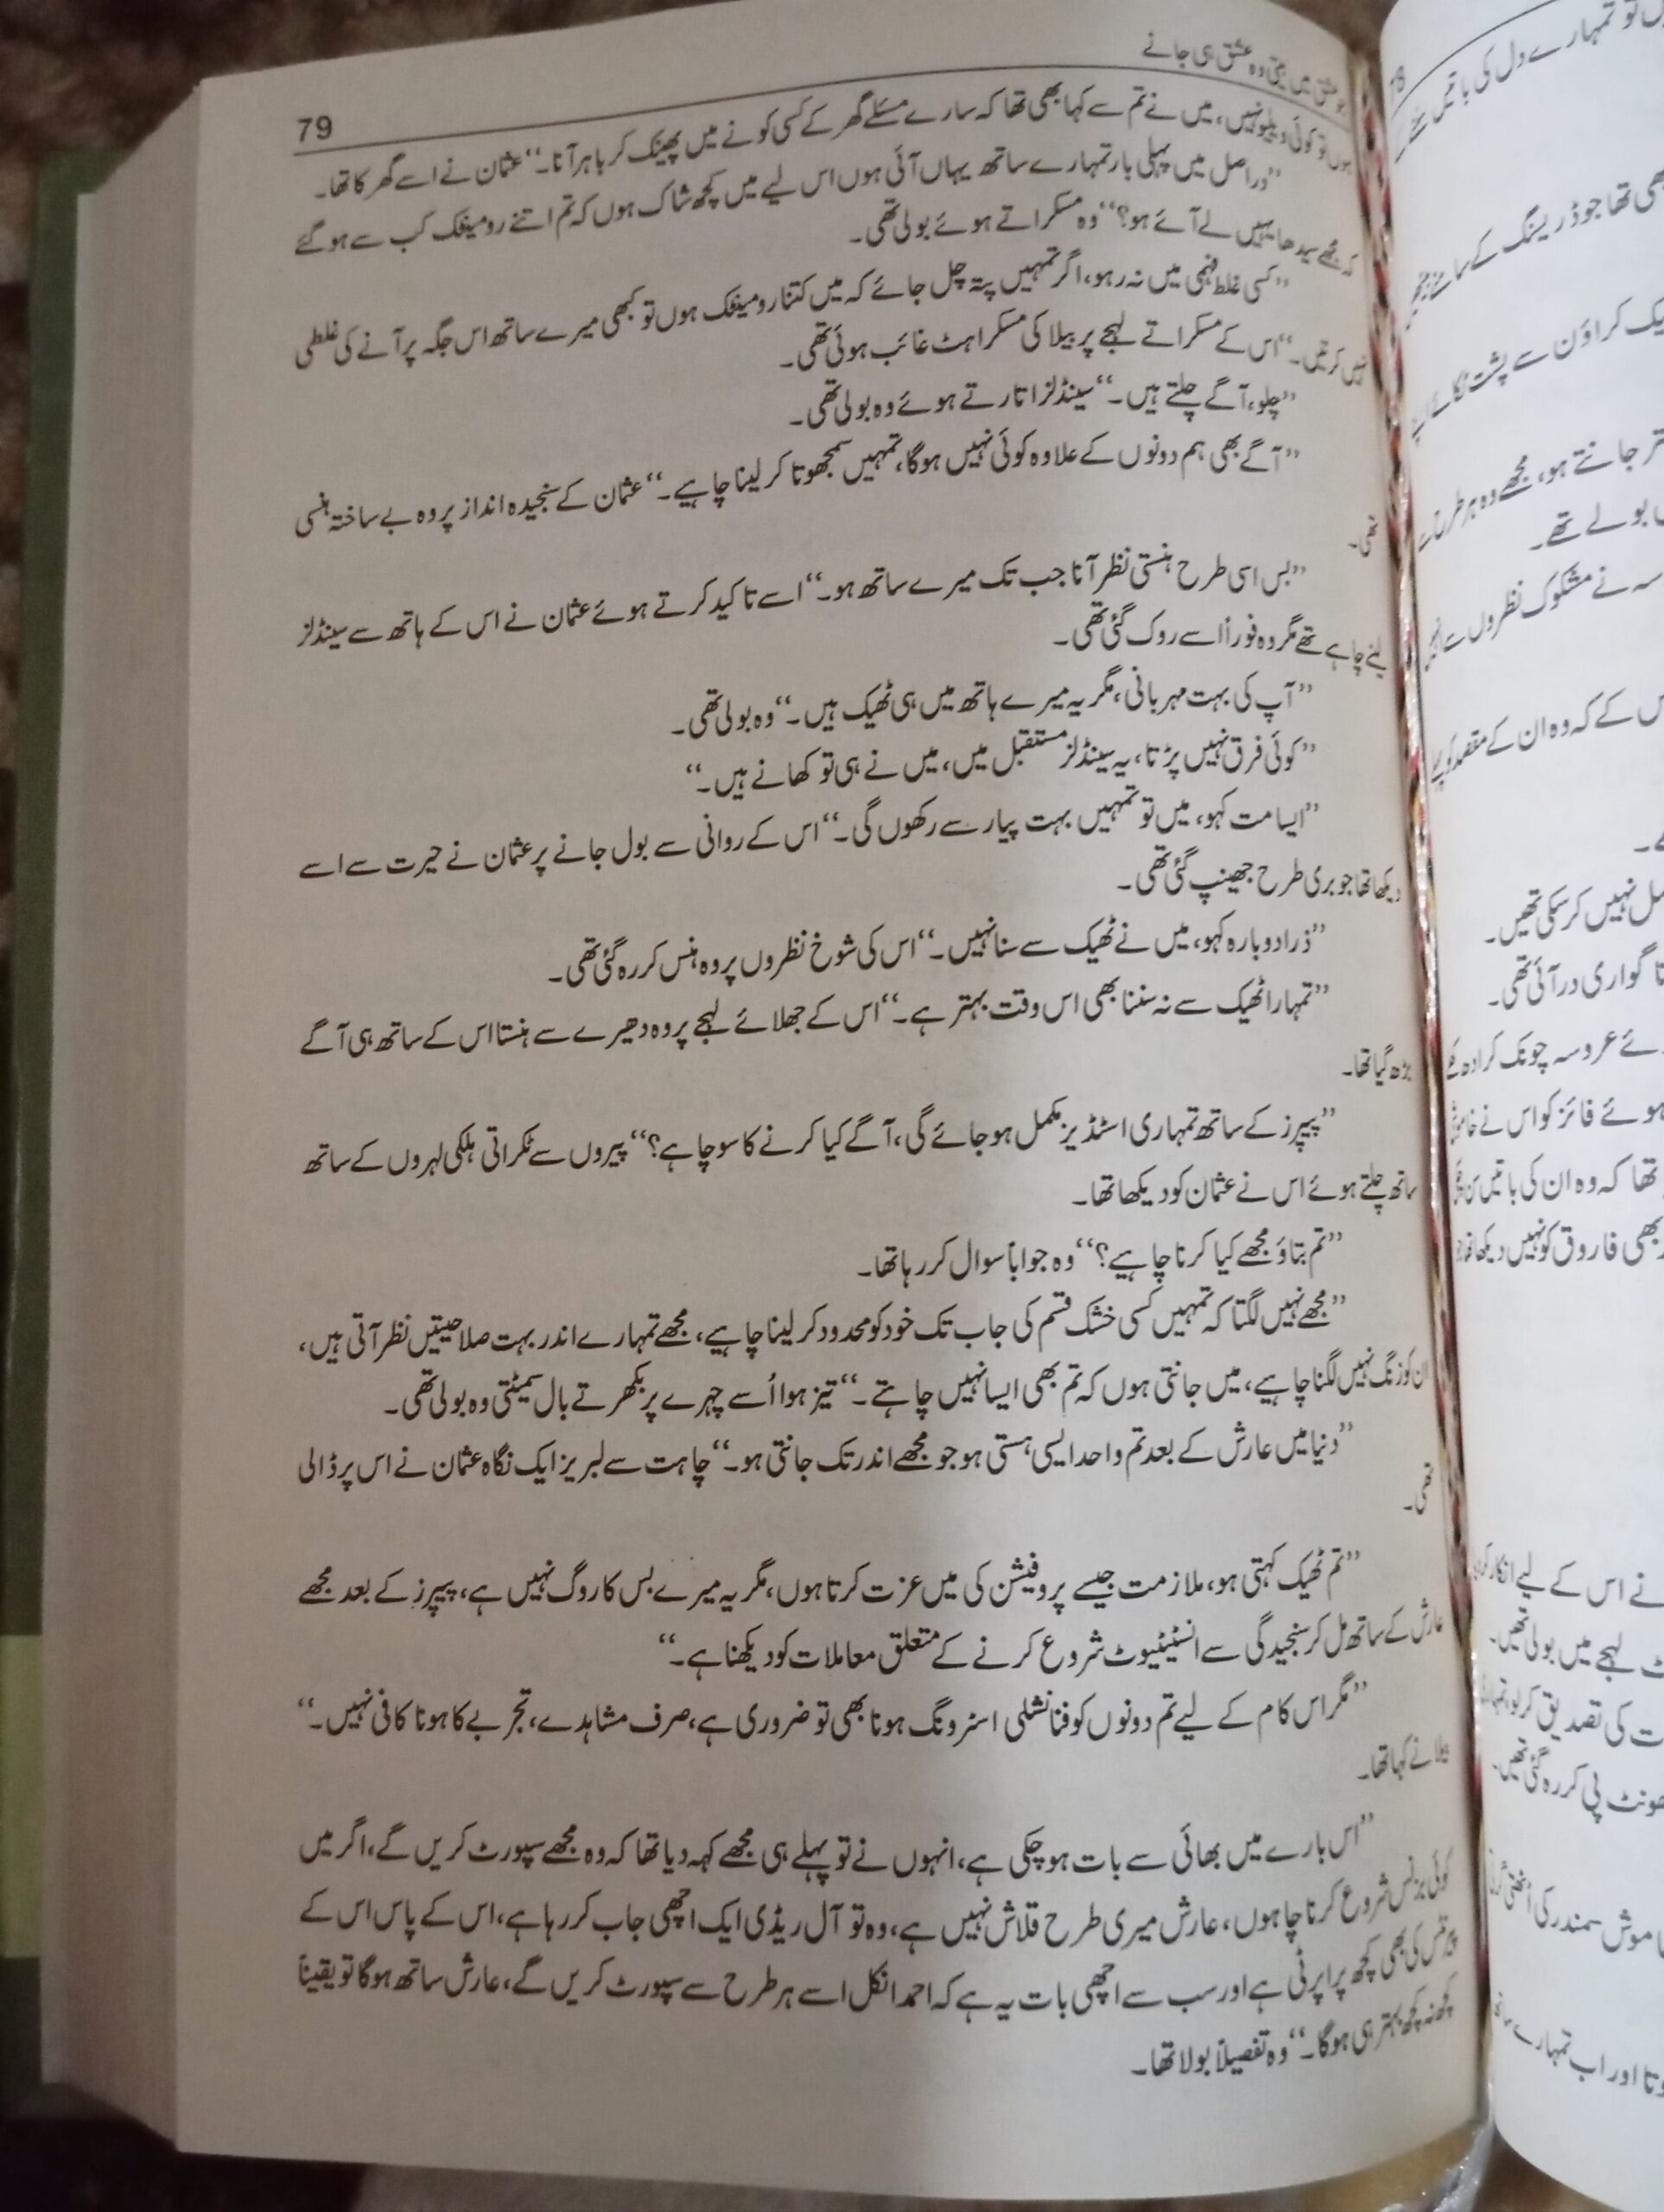 79
عشق ہی جانے
ہوں تو کوئی ویلیو نہیں، میں نے تم سے کہا بھی تھا کہ سارے مسئلے گھر کے کسی کونے میں پھینک کر باہر آنا۔‘‘ عثمان نے اسے گھرکا تھا۔
’’دراصل میں پہلی بار تمہارے ساتھ یہاں آئی ہوں اس لیے میں کچھ شاک ہوں کہ تم اتنے رومینٹک کب سے ہو گئے
کہ مجھے سیدھا یہیں لے آئے ہو؟‘‘ وہ مسکراتے ہوئے بولی تھی۔
’’کسی غلط فہمی میں نہ رہو، اگر تمہیں پتہ چل جائے کہ میں کتنا رومینٹک ہوں تو کبھی میرے ساتھ اس جگہ پر آنے کی غلطی
نہیں کرتیں۔‘‘ اس کے مسکراتے لہجے پر بیلا کی مسکراہٹ غائب ہوئی تھی۔
’’چلو، آگے چلتے ہیں۔‘‘ سینڈلز اتارتے ہوئے وہ بولی تھی۔
’’آگے بھی ہم دونوں کے علاوہ کوئی نہیں ہوگا، تمہیں سمجھوتا کر لینا چاہیے۔‘‘ عثمان کے سنجیدہ انداز پر وہ بے ساختہ ہنسی
تھی۔
’’بس اسی طرح ہنستی نظر آنا جب تک میرے ساتھ ہو۔‘‘ اسے تاکید کرتے ہوئے عثمان نے اس کے ہاتھ سے سینڈلز
لینے چاہے تھے مگر وہ فوراً اسے روک گئی تھی۔
’’آپ کی بہت مہربانی، مگر یہ میرے ہاتھ میں ہی ٹھیک ہیں۔‘‘ وہ بولی تھی۔
’’کوئی فرق نہیں پڑتا، یہ سینڈلز مستقبل میں، میں نے ہی تو کھانے ہیں۔‘‘
’’ایسا مت کہو، میں تو تمہیں بہت پیار سے رکھوں گی۔‘‘ اس کے روانی سے بول جانے پر عثمان نے حیرت سے اسے
دیکھا تھا جو بری طرح جھینپ گئی تھی۔
’’ذرا دوبارہ کہو، میں نے ٹھیک سے سنا نہیں۔‘‘ اس کی شوخ نظروں پر وہ ہنس کر رہ گئی تھی۔
’’تمہارا ٹھیک سے نہ سننا بھی اس وقت بہتر ہے۔‘‘ اس کے جھلائے لہجے پر وہ دھیرے سے ہنستا اس کے ساتھ ہی آگے
بڑھ گیا تھا۔
’’پیپرز کے ساتھ تمہاری اسٹڈیز مکمل ہو جائے گی، آگے کیا کرنے کا سوچا ہے؟‘‘ پیروں سے ٹکراتی ہلکی لہروں کے ساتھ
ساتھ چلتے ہوئے اس نے عثمان کو دیکھا تھا۔
’’تم بتاؤ مجھے کیا کرنا چاہیے؟‘‘ وہ جواباً سوال کر رہا تھا۔
’’مجھے نہیں لگتا کہ تمہیں کسی خشک قسم کی جاب تک خود کو محدود کر لینا چاہیے، مجھے تمہارے اندر بہت صلاحیتیں نظر آتی ہیں،
ان کو زنگ نہیں لگنا چاہیے، میں جانتی ہوں کہ تم بھی ایسا نہیں چاہتے۔‘‘ تیز ہوا اُسے چہرے پر بکھرتے بال سمیٹتی وہ بولی تھی۔
’’دنیا میں عارش کے بعد تم واحد ایسی ہستی ہو جو مجھے اندر تک جانتی ہو۔‘‘ چاہت سے لبریز ایک نگاہ عثمان نے اس پر ڈالی
تھی۔
’’تم ٹھیک کہتی ہو، ملازمت جیسے پروفیشن کی میں عزت کرتا ہوں، مگر یہ میرے بس کا روگ نہیں ہے، پیپرز کے بعد مجھے
عارش کے ساتھ مل کر سنجیدگی سے انسٹیٹیوٹ شروع کرنے کے متعلق معاملات کو دیکھنا ہے۔‘‘
’’مگر اس کام کے لیے تم دونوں کو فنانشلی اسٹرونگ ہونا بھی تو ضروری ہے، صرف مشاہدے، تجربے کا ہونا کافی نہیں۔‘‘
بیلا نے کہا تھا۔
’’اس بارے میں بھائی سے بات ہو چکی ہے، انہوں نے تو پہلے ہی مجھے کہہ دیا تھا کہ وہ مجھے سپورٹ کریں گے، اگر میں
کوئی بزنس شروع کرنا چاہوں، عارش میری طرح قلاش نہیں ہے، وہ تو آل ریڈی ایک اچھی جاب کر رہا ہے، اس کے پاس اس کے
پیرنٹس کی بھی کچھ پراپرٹی ہے اور سب سے اچھی بات یہ ہے کہ احمد انکل اسے ہر طرح سے سپورٹ کریں گے، عارش ساتھ ہوگا تو یقیناً
کچھ نہ کچھ بہتر ہی ہوگا۔‘‘ وہ تفصیلاً بولا تھا۔
تو تمہارے دل کی باتیں
بھی تھا جو ڈریسنگ کے سامنے
کراؤن سے پشت ٹکائے
جانتے ہو، مجھے وہ ہر طرح سے
بولے تھے۔
نے مشکوک نظروں سے
کے کہ وہ ان کے مقصد کو
نہیں کر سکی تھیں۔
گواری در آئی تھی۔
عروسہ چونک کر
ہوئے فائز کو اس نے
تھا کہ وہ ان کی باتیں
بھی فاروق کو نہیں دیکھا تھا
نے اس کے لیے انکار
لہجے میں بولی تھیں۔
کی تصدیق کر لو
پی کر رہ گئی تھیں۔
سمندر کی
اور اب تمہارے